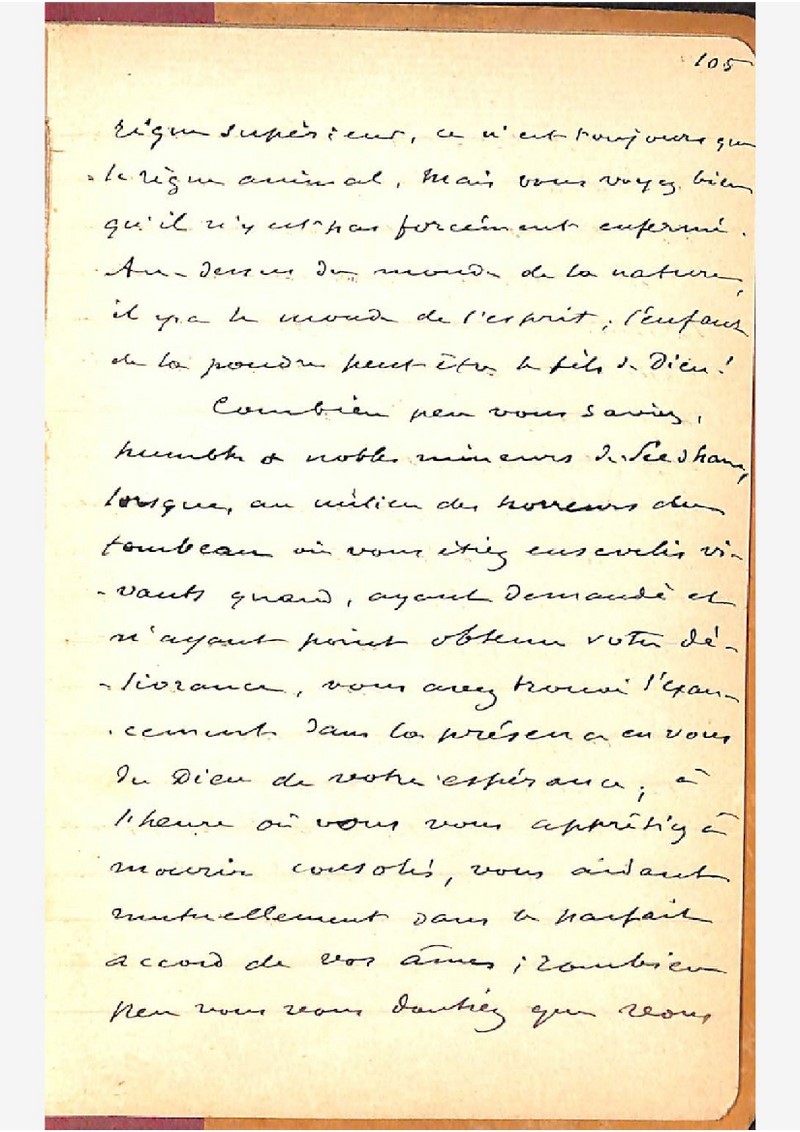 105
règne supérieur, ce n'est toujours que
le règne animal. Mais vous voyez bien
qu'il n'y est pas forcément enfermé.
Au-dessus du monde de la nature,
il y a le monde de l'esprit ; l'enfant
de la poudre peut être le fils de Dieu !
Combien peu vous saviez,
humbles & nobles mineurs de Seedham,
lorsque, au milieu des horreurs du
tombeau où vous étiez ensevelis vi-
-vants quand, ayant demandé et
n'ayant point obtenu votre dé-
-livrance, vous avez trouvé l'exau-
-cement dans la présence en vous
du Dieu de votre espérance ; à
l'heure où vous vous apprêtiez à
mourir consolés, vous aidant
mutuellement dans le parfait
accord de vos âmes ; combien
peu vous vous doutiez que vous